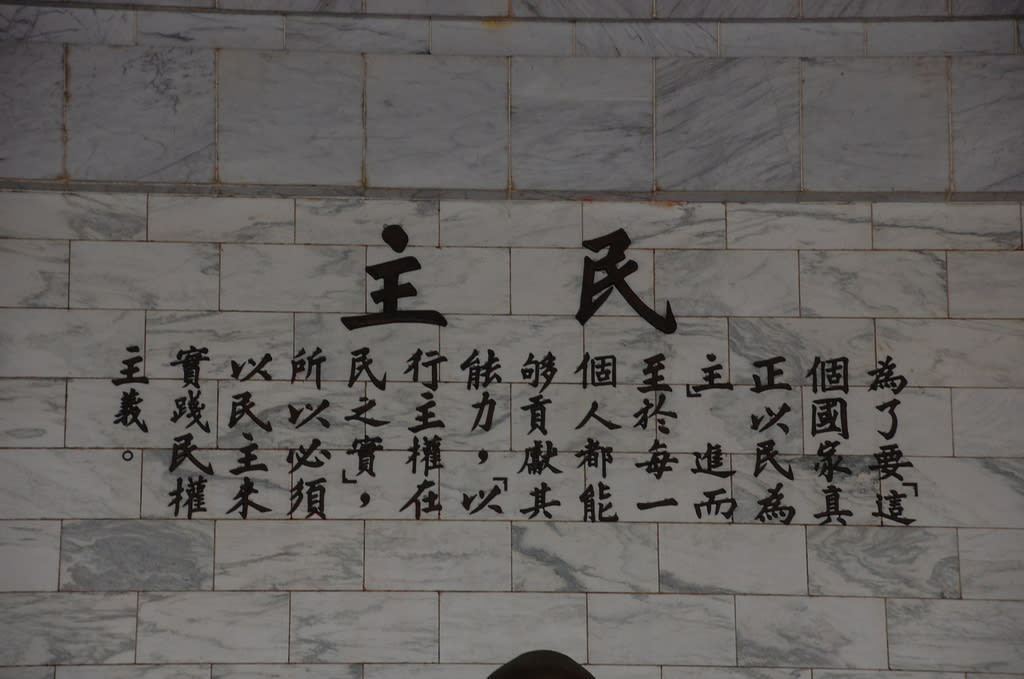 民主
為了要「這
個國家真
正以民為
主」進而
至於每一
個人都能
够貢獻其
能力，「以
行主權在
民之實」，
所以必須
以民主來
實踐民權
主義。